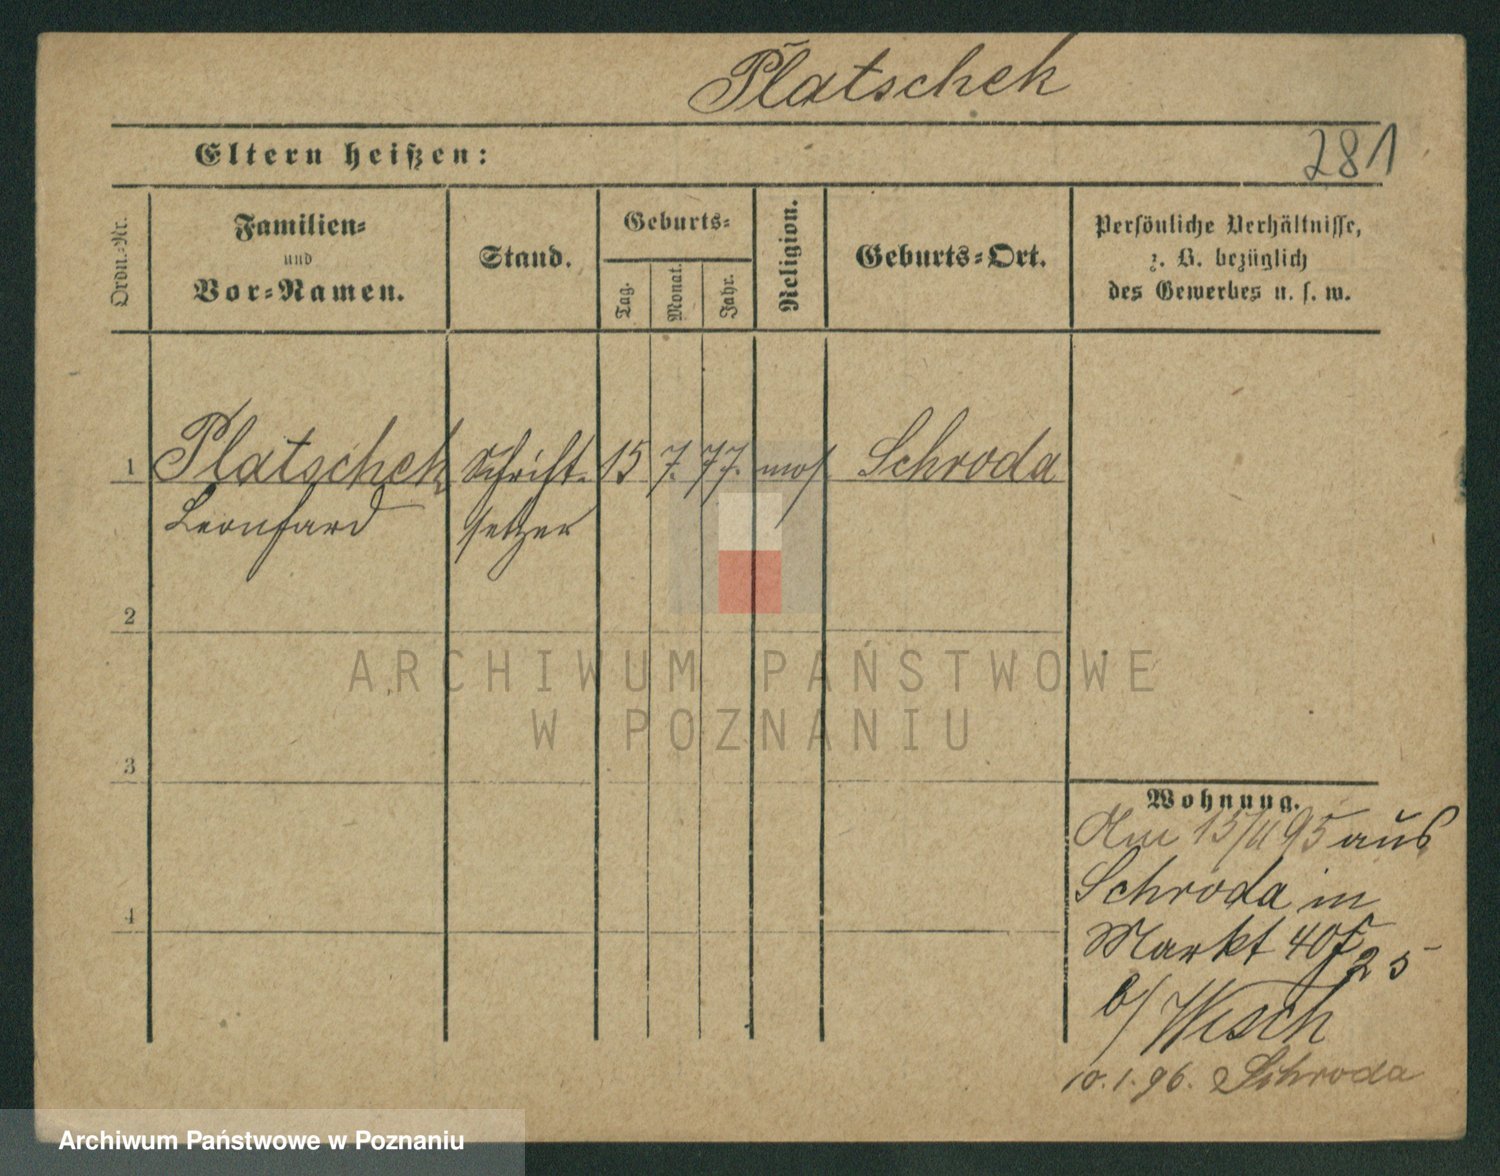 Platschek
Eltern heißen:
281
Ordn.-Nr.
Familien-
und
Vor-Namen.
Stand.
Geburts-
Tag.
Monat.
Jahr.
Religion.
Geburts-Ort.
Persönliche Verhältnisse,
z. B. bezüglich
des Gewerbes u. s. w.
1 Platschek Schrift- 15 7. 77. mos. Schroda
Leonhard setzer
2
3
4
ARCHIWUM PAŃSTWOWE
W POZNANIU
Wohnung.
Am 95 aus
Schroda in
Markt 40
25
b/ Wisch
10.1.96. Schroda
Archiwum Państwowe w Poznaniu